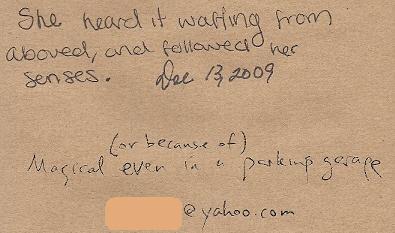 She heard it wafting from
aboved, and followed her
senses. Dec 13, 2009
(or because of)
Magical even in a parking garage
@yahoo.com